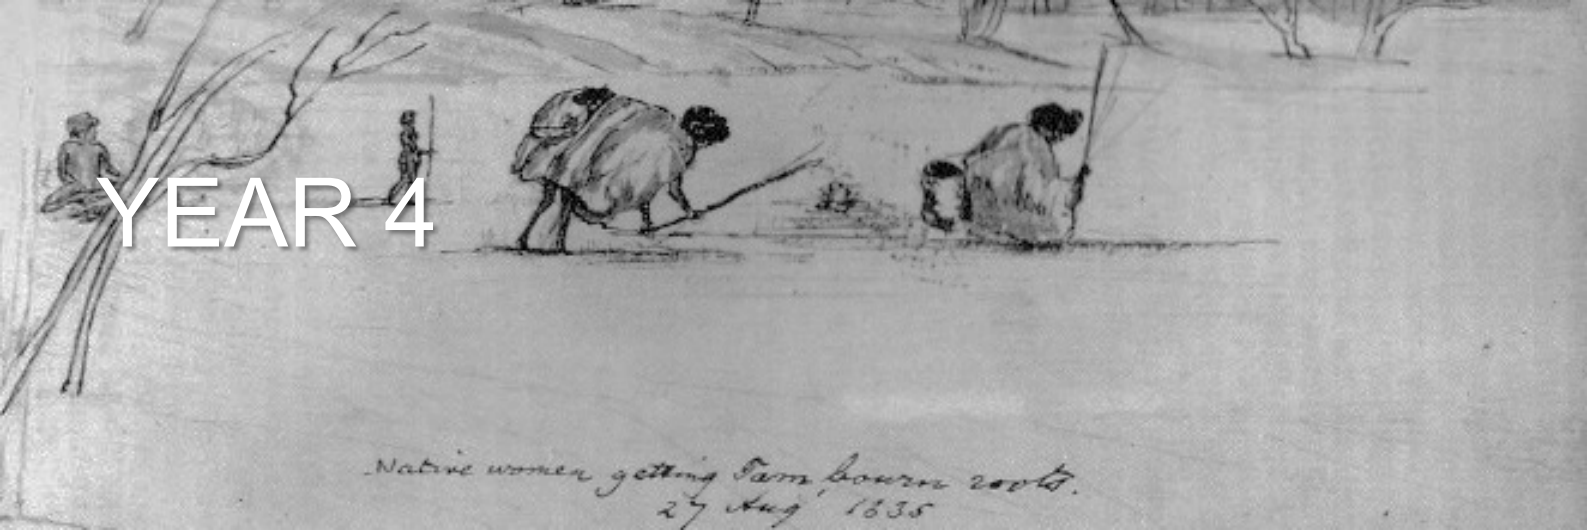 YEAR 4
Native women getting Tam bourn roots.
27 Aug 1835